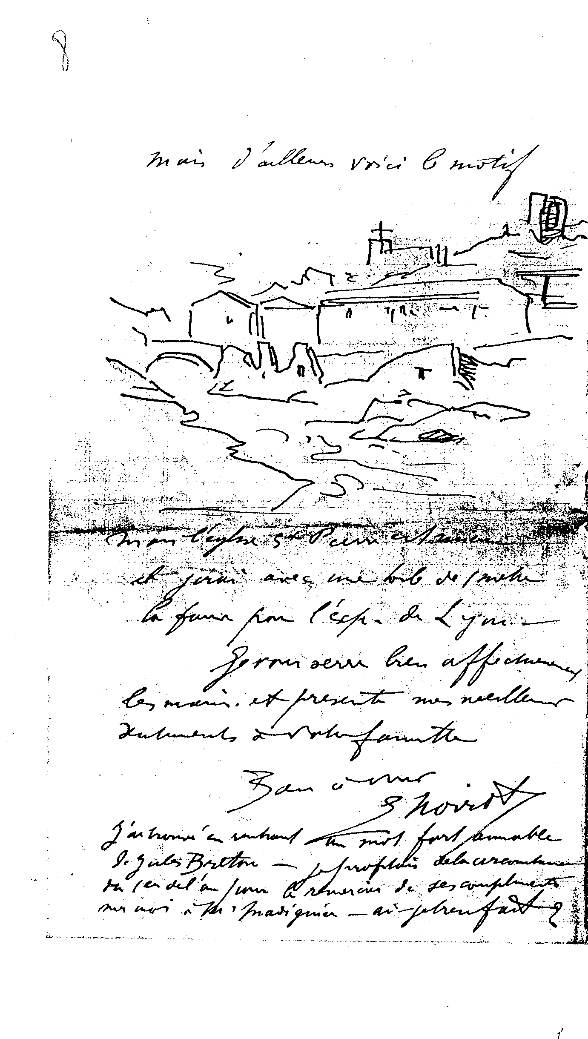 8
mais d'ailleurs voici le motif
mais l'église St Pierre
et j'irai avec une toile de 1 mètre
la faire pour l'exp. de Lyon —
Je vous serre bien affectueusement
les mains. et présente mes meilleurs
sentiments à votre famille
Bien à vous
E Noirot
J'ai trouvé en rentrant un mot fort aimable
de Jules Breton — je profitais de la circonstance
du 1er de l'an pour le remercier de ses compliments
sur moi à Mr — ai-je bien fait ?